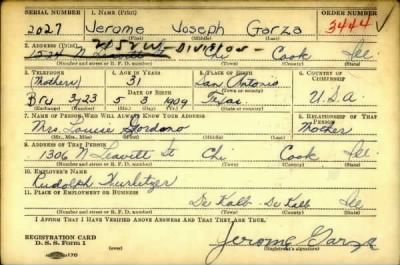 SERIAL NUMBER 1. NAME (Print) ORDER NUMBER
2027 Jerome Joseph Garza 3444
(First) (Middle) (Last)
2. ADDRESS (Print)
2452 W DIVISION
1524 N Chi Cook Ill
(Number and street or R. F. D. number) (Town) (County) (State)
3. TELEPHONE 4. AGE IN YEARS 5. PLACE OF BIRTH 6. COUNTRY OF CITIZENSHIP
(Mothers) 31 San Antonio
DATE OF BIRTH (Town or county)
Bru 3423 5 3 1909 Texas U.S.A.
(Exchange) (Number) (Mo.) (Day) (Yr.) (State or country)
7. NAME OF PERSON WHO WILL ALWAYS KNOW YOUR ADDRESS 8. RELATIONSHIP OF THAT PERSON
Mrs. Louise Giordano Mother
(Mr., Mrs., Miss) (First) (Middle) (Last)
9. ADDRESS OF THAT PERSON
1306 N Leavitt St Chi Cook Ill
(Number and street or R. F. D. number) (Town) (County) (State)
10. EMPLOYER'S NAME
Rudolph Wurlitzer
11. PLACE OF EMPLOYMENT OR BUSINESS
De Kalb De Kalb Ill
(Number and street or R. F. D. number) (Town) (County) (State)
I AFFIRM THAT I HAVE VERIFIED ABOVE ANSWERS AND THAT THEY ARE TRUE.
REGISTRATION CARD
D. S. S. Form 1 Jerome Garza
(Registrant's signature)